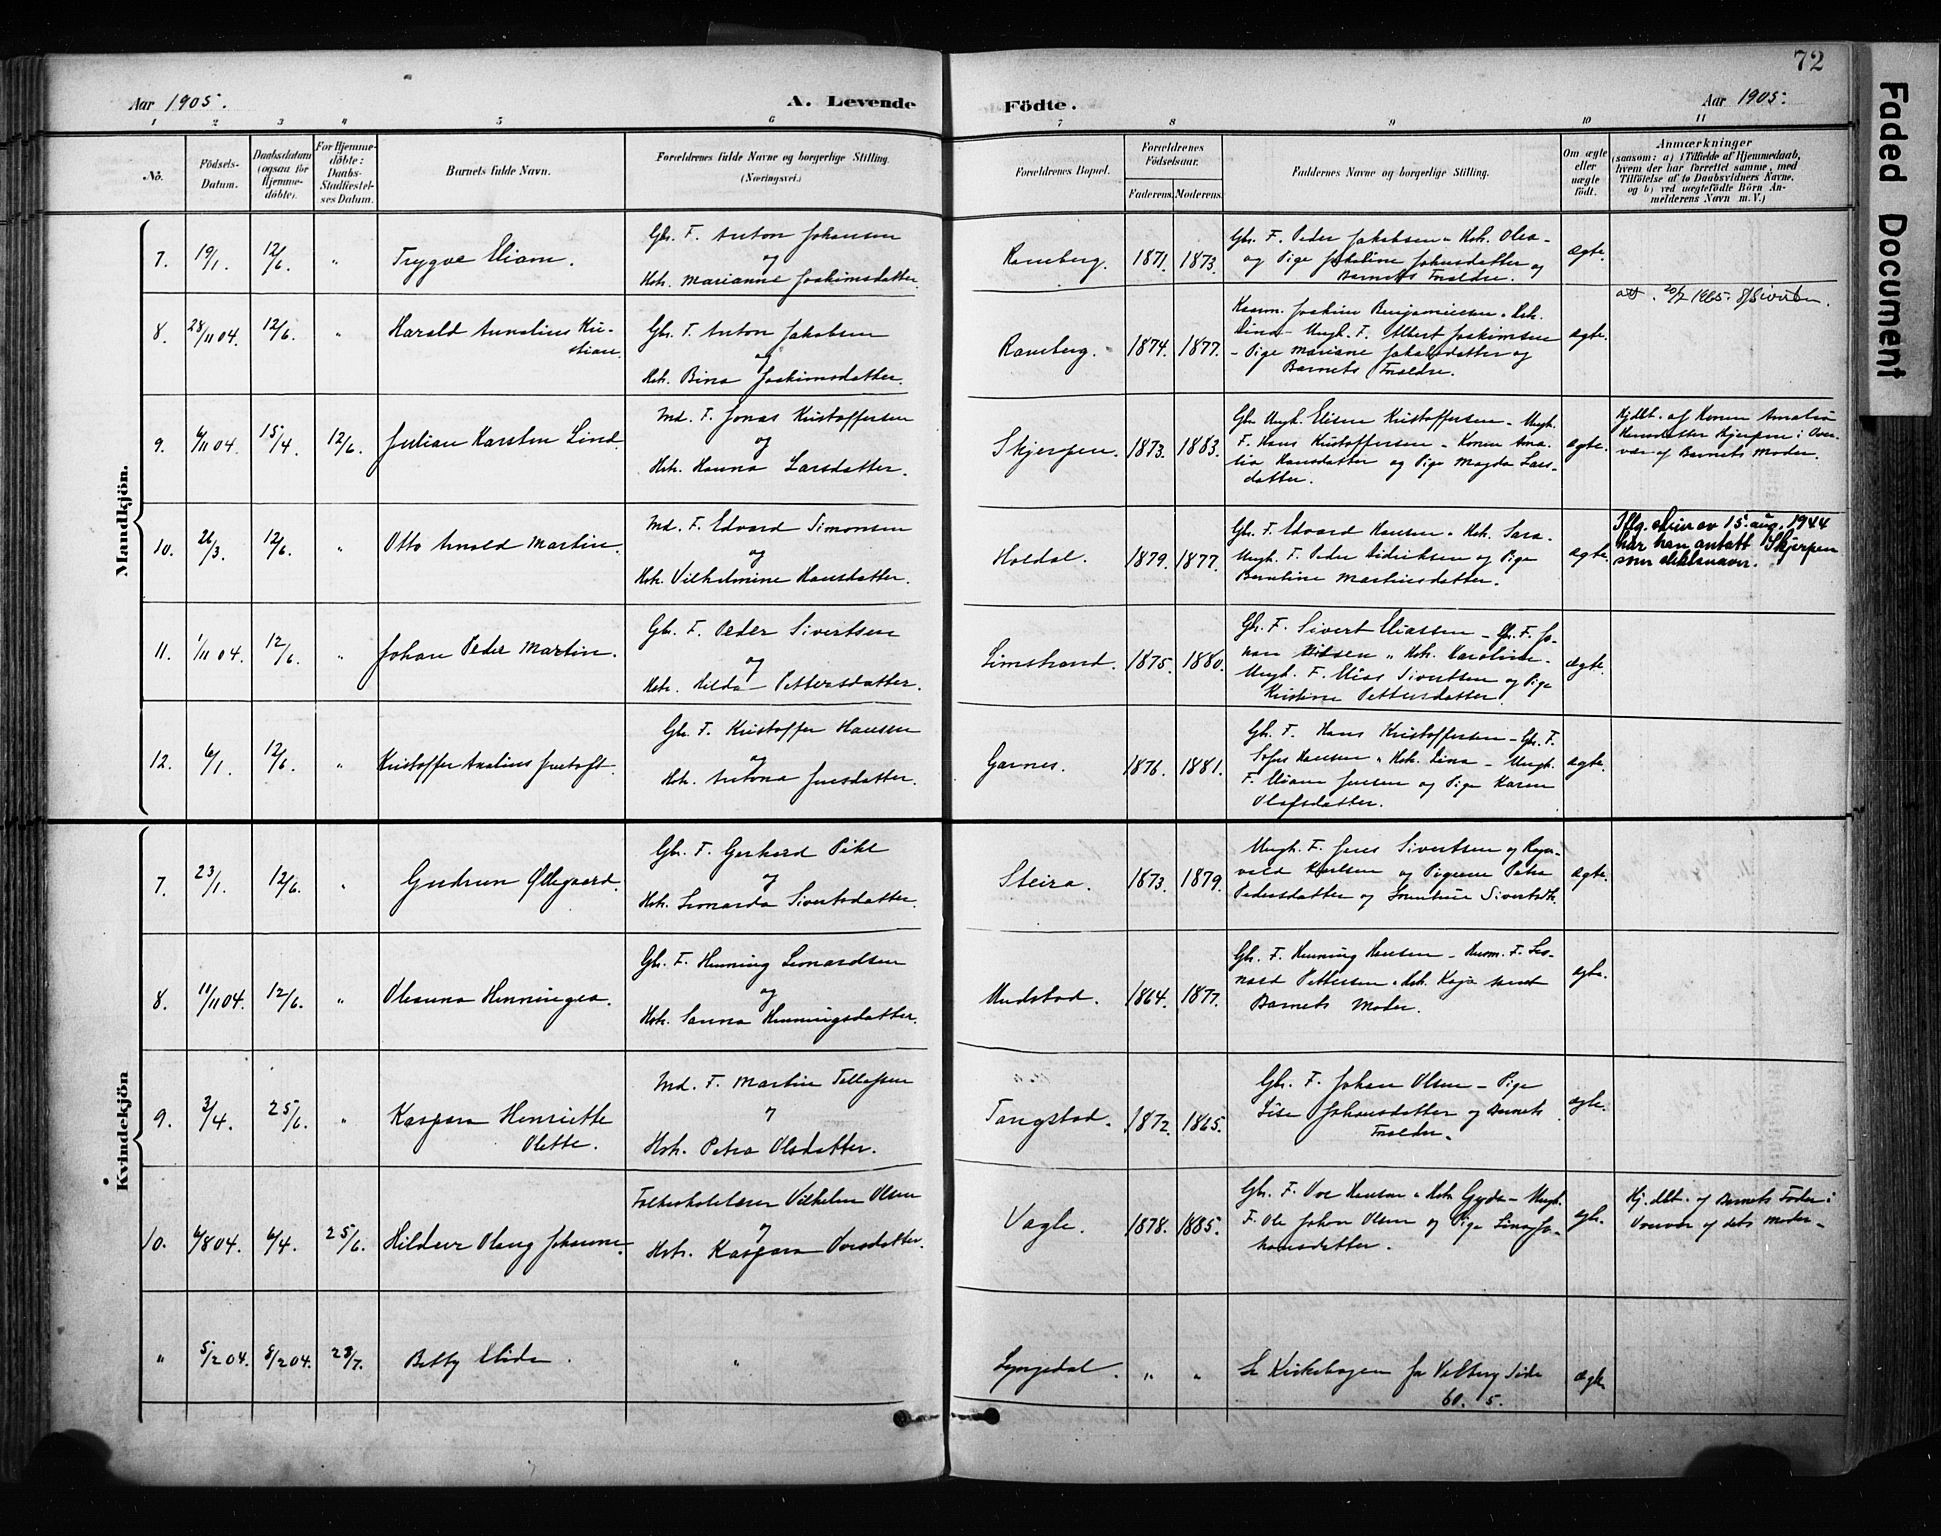 72
Faded Document
Aar 1905.
A. Levende
Födte.
Aar 1905.
1 2 3 4 5 6 7 8 9 10 11
No.
Födsels-
Datum.
Daabsdatum
(ogsaa for
Hjemme-
döbte).
For Hjemme-
döbte:
Daabs-
Stadfæstel-
ses Datum.
Barnets fulde Navn.
Forældrenes fulde Navne og borgerlige Stilling.
(Næringsvei.)
Forældrenes Bopæl.
Forældrenes
Födselsaar.
Faderens.
Moderens.
Faddernes Navne og borgerlige Stilling.
Om ægte
eller
uægte
födt.
Anmærkninger
(saasom: a) i Tilfælde af Hjemmedaab,
hvem der har forrettet samme, med
Tilföielse af to Daabsvidners Navne,
og b) ved uægtefödte Börn An-
melderens Navn m. V.)
Mandkjön.
7. 19/1. 12/6. "
Trygve Eliam.
Gbr. F. Anton Johansen
og
Hstr. Marianne Joakimsdatter.
Ramberg. 1871. 1873.
Gbr. F. Peder Jakobsen " Hstr. Olea -
og Pige Jakobine Johnsdatter og
Barnets Forældre.
ægte.
8. 28/11 04. 12/6. "
Harald Annelius Kri-
stian.
Gbr. F. Anton Jakobsen
og
Hstr. Bina Joakimsdatter.
Ramberg. 1874. 1877.
Kaarm. Joakim Benjaminsen " Hstr.
Lina - Ungk. F. Albert Joakimsen
- Pige Mariane Jakobsdatter og
Barnets Forældre.
ægte.
att. 20/2 1965.
9. 6/11 04. 15/4. 12/6.
Julian Karsten Lind.
Md. F. Jonas Kristoffersen
og
Hstr. Hanna Larsdatter.
Skjerpen. 1873. 1883.
Gbr. Ungk. Elisen Kristoffersen - Ungk.
F. Hans Kristoffersen - Konen Ama-
lia Hansdatter og Pige Magda Lars-
datter.
ægte.
Hj.dbt. af Konen Amalia
Hansdatter Skjerpen i Over-
vær af Barnets Moder.
10. 26/3. 12/6. "
Otto Arnold Martin.
Md. F. Edvard Simonsen
og
Hstr. Vilhelmine Hansdatter.
Holdal. 1879. 1877.
Gbr. F. Edvard Hansen " Hstr. Sara.
Ungk. F. Peder Didriksen og Pige
Berntine Martinsdatter.
ægte.
Iflg. skriv av 15. aug. 1944
har han antatt Skjerpen
som slektsnavn.
11. 1/11 04. 12/6. "
Johan Peder Martin.
Gbr. F. Peder Sivertsen
og
Hstr. Hilda Pettersdatter.
Limstrand. 1875. 1880.
Gbr. F. Sivert Eliassen - Gbr. F. Jo-
han Nilsen " Hstr. Karoline.
Ungk. F. Elias Sivertsen og Pige
Kristine Pettersdatter.
ægte.
12. 6/1. 12/6. "
Kristoffer Analius Jentoft.
Gbr. F. Kristoffer Hansen
og
Hstr. Antona Jensdatter.
Garnes. 1876. 1881.
Gbr. F. Hans Kristoffersen - Gbr. F.
Sofus Hansen " Hstr. Lina - Ungk.
F. Eliam Jensen og Pige Karen
Olafsdatter.
ægte.
Kvindekjön
7. 23/1. 12/6. "
Gudrun Øllegaard.
Gbr. F. Gerhard Pihl
og
Hstr. Leonarda Sivertsdatter.
Steira. 1873. 1879.
Ungk. F. Jens Sivertsen og Ragn-
vald Karlsen og Pigerne Petra
Pedersdatter og Lorentine Sivertsdtr.
ægte.
8. 11/11 04. 12/6. "
Oleanna Henningea.
Gbr. F. Henning Leonardsen
og
Hstr. Sanna Henningsdatter.
Mudstad. 1864. 1877.
Gbr. F. Henning Hansen - Kaarm. F. Leo-
nard Pettersen " Hstr. Kaja samt
Barnets Moder.
ægte.
9. 3/4. 25/6. "
Kaspara Henriette
Olette.
Md. F. Martin Tollefsen
og
Hstr. Petra Olsdatter.
Tangstad. 1872. 1865.
Gbr. F. Johan Olsen - Pige
Lise Johansdatter og Barnets
Forældre.
ægte.
10. 6/8 04. 6/4. 25/6.
Hildur Olaug Johanne.
Folkeskolelærer Vilhelm Olsen
og
Hstr. Kaspara Ovesdatter.
Vagle. 1878. 1885.
Gbr. F. Ove Hansen " Hstr. Gyda - Ungk.
F. Ole Johan Olsen og Pige Lina Jo-
hansdatter.
ægte.
Hj.dbt. af Barnets Fader i
Overvær af dets Moder.
" 5/2 04. 8/2 04. 23/7.
Betty Elida.
"
Lyngedal. " "
Se Kirkebogen for Valberg Side
60. 5.
ægte.